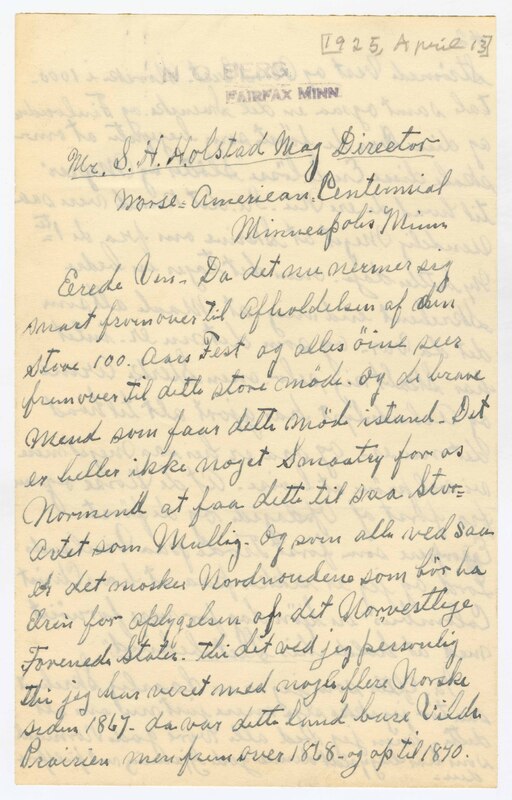 [1925, April 13]
N BERG
FAIRFAX MINN.
Mr. S. H. Holstad Mag Director
Norse-American Centennial
Minneapolis Minn
Erede Ven - Da det nu nermer sig
snart fremover til Afholdelsen af den
Store 100. Aars Fest og alles öine seer
fremover til dette store möde. og de brave
Mend som faar dette möde istand - Det
er heller ikke noget Smaatry for os
Normend at faa dette til saa Stor-
Artet som Mullig. Og som alle ved saa
er det norske Nordmondene som bör ha
Eren for oplygelsen af det Norvestlige
Forenede Stater. thi det ved jeg personlig
thi jeg har veret med nogle flere Norske
siden 1867 - da var dette land bare Vilde
Prairien men frem over 1868 - og op til 1870.